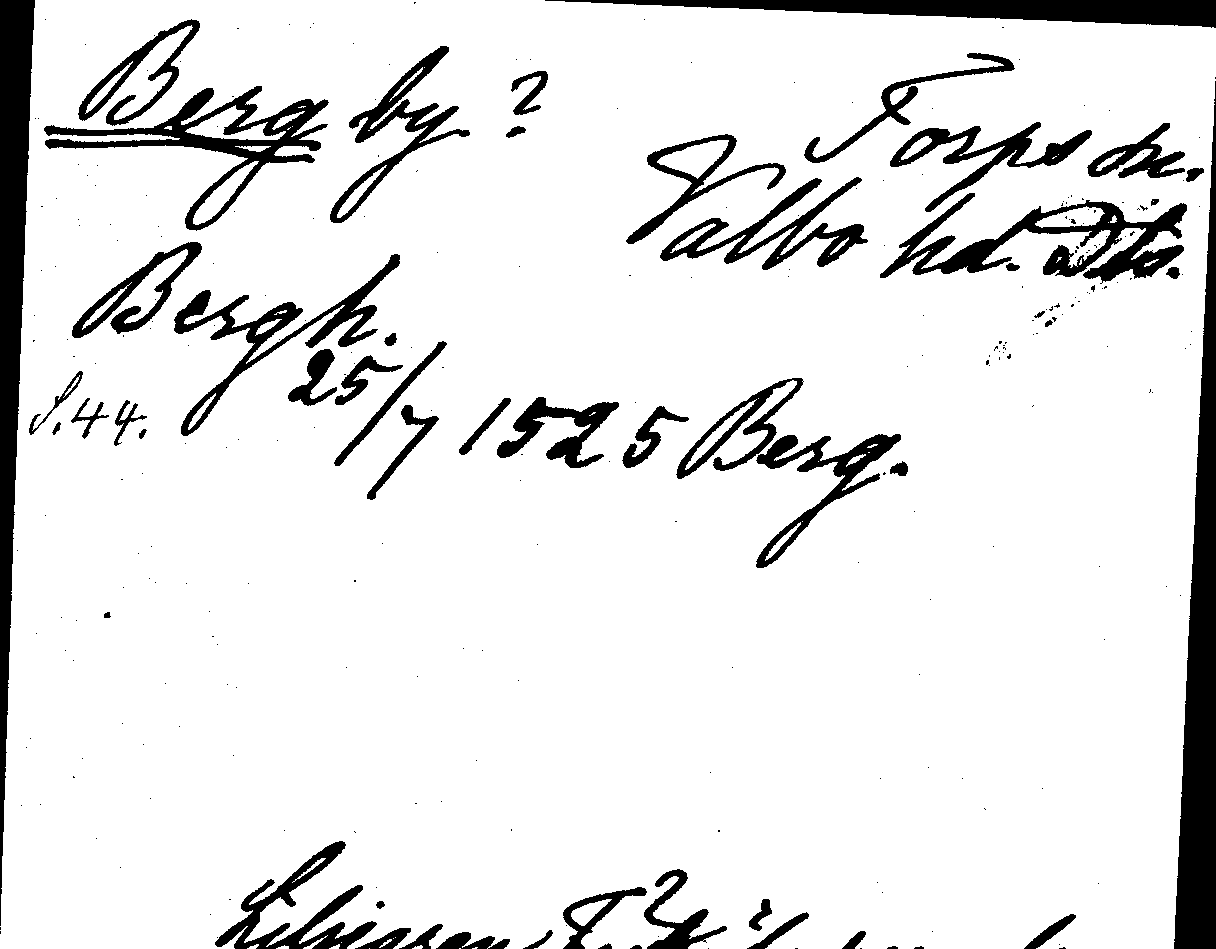 Berg by. ?
Torps sn.
Valbo hd. Dls.
Bergh.
S. 44.
25/7 1525 Berg.
Liljegren,